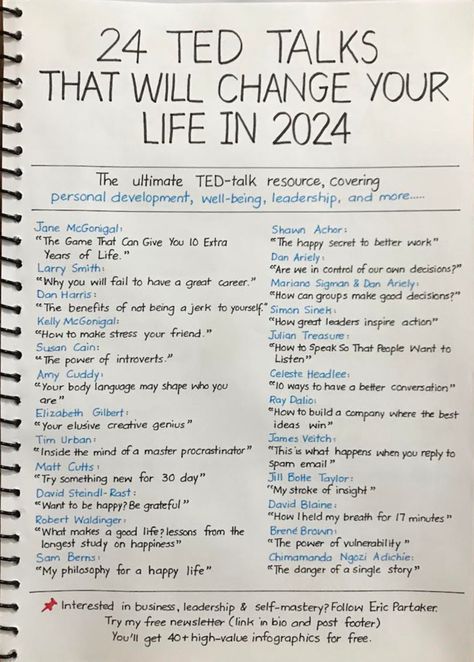 24 TED TALKS
THAT WILL CHANGE YOUR
LIFE IN 2024
The ultimate TED-talk resource, covering
personal development, well-being, leadership, and more.....
Jane McGonigal:
"The Game That Can Give You 10 Extra
Years of Life."
Larry Smith:
"Why you will fail to have a great career."
Dan Harris:
"The benefits of not being a jerk to yourself."
Kelly McGonigal:
"How to make stress your friend."
Susan Cain:
"The power of introverts."
Amy Cuddy:
"Your body language may shape who you
are"
Elizabeth Gilbert:
"Your elusive creative genius"
Tim Urban:
"Inside the mind of a master procrastinator"
Matt Cutts:
"Try something new for 30 day"
David Steindl-Rast:
"Want to be happy? Be grateful"
Robert Waldinger:
"What makes a good life? lessons from the
longest study on happiness"
Sam Berns:
"My philosophy for a happy life"
Shawn Achor:
"The happy secret to better work"
Dan Ariely:
"Are we in control of our own decisions?"
Mariano Sigman & Dan Ariely:
"How can groups make good decisions?"
Simon Sinek:
"How great leaders inspire action"
Julian Treasure:
"How to Speak So That People Want to
Listen"
Celeste Headlee:
"10 ways to have a better conversation"
Ray Dalio:
"How to build a company where the best
ideas win"
James Veitch:
"This is what happens when you reply to
spam email"
Jill Bolte Taylor:
"My stroke of insight"
David Blaine:
"How I held my breath for 17 minutes"
Brené Brown:
"The power of vulnerability"
Chimamanda Ngozi Adichie:
"The danger of a single story"
Interested in business, leadership & self-mastery? Follow Eric Partaker.
Try my free newsletter (link in bio and post footer)
You'll get 40+ high-value infographics for free.